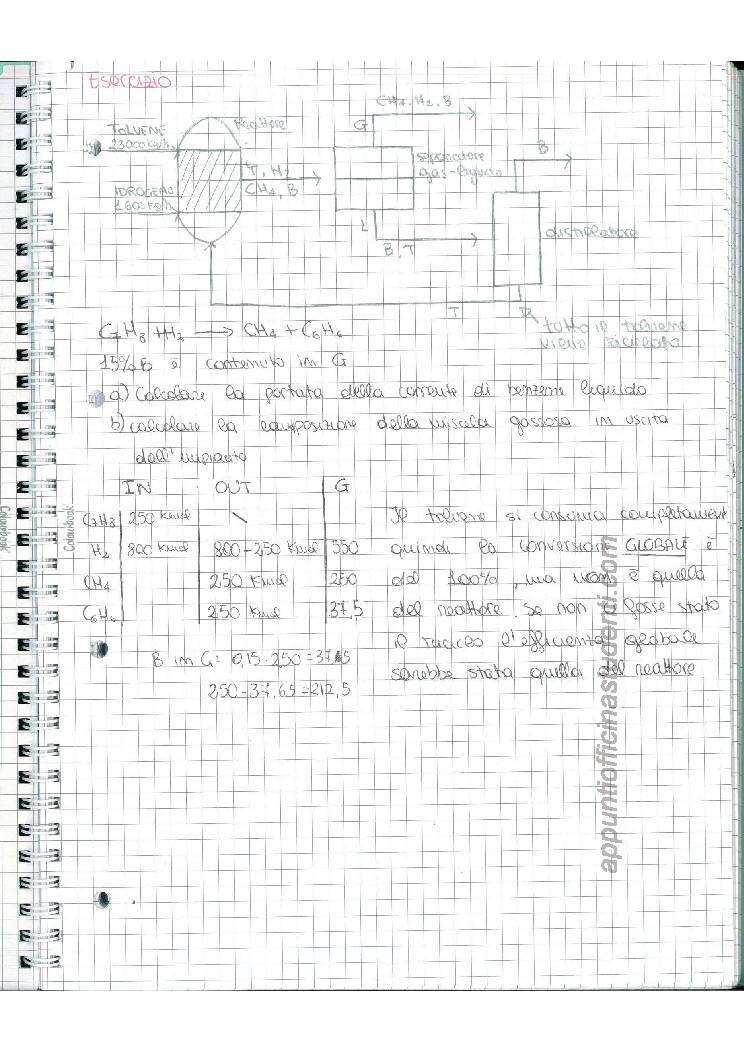 Esercizio
CH4, H2, B
G
TOLUENE
23000 kg/h
Reattore
B
T, H2
CH4, B
separatore
gas-liquido
IDROGENO
1600 kg/h
L
B, T
distillatore
T
R
tutto il toluene
viene riciclato
C7H8 + H2 → CH4 + C6H6
15% B è contenuto in G
a) Calcolare la portata della corrente di benzene liquido
b) calcolare la composizione della miscela gassosa in uscita
dall'impianto
IN OUT G
C7H8 250 Kmol \
H2 800 Kmol 800-250 Kmol 550
CH4 250 Kmol 250
C6H6 250 Kmol 37,5
B in G: 0,15·250=37,5
250-37,65=212,5
Il toluene si consuma completament
quindi la conversione GLOBALE è
del 100%, ma non è quella
del reattore. Se non ci fosse stato
il riciclo l'efficienza globale
sarebbe stata quella del reattore
appuntiofficinastudenti.com
Colourbook
Colourbook